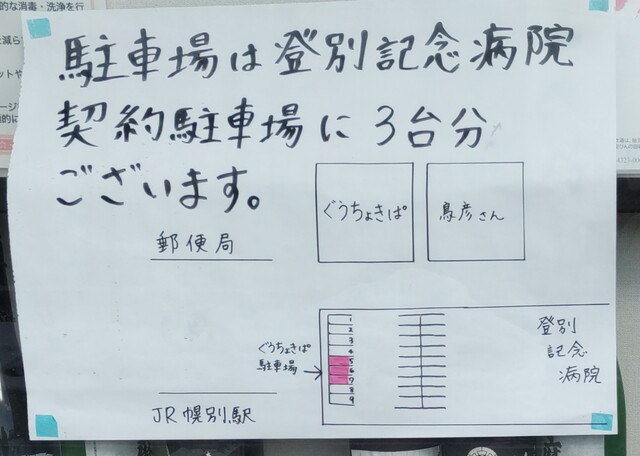 駐車場は登別記念病院
契約駐車場に3台分
ございます。
ぐうちょきぱ
鳥彦さん
郵便局
1
2
3
4
5
6
7
8
9
ぐうちょきぱ
駐車場
登別
記念
病院
JR幌別駅
的な消毒・洗浄を行